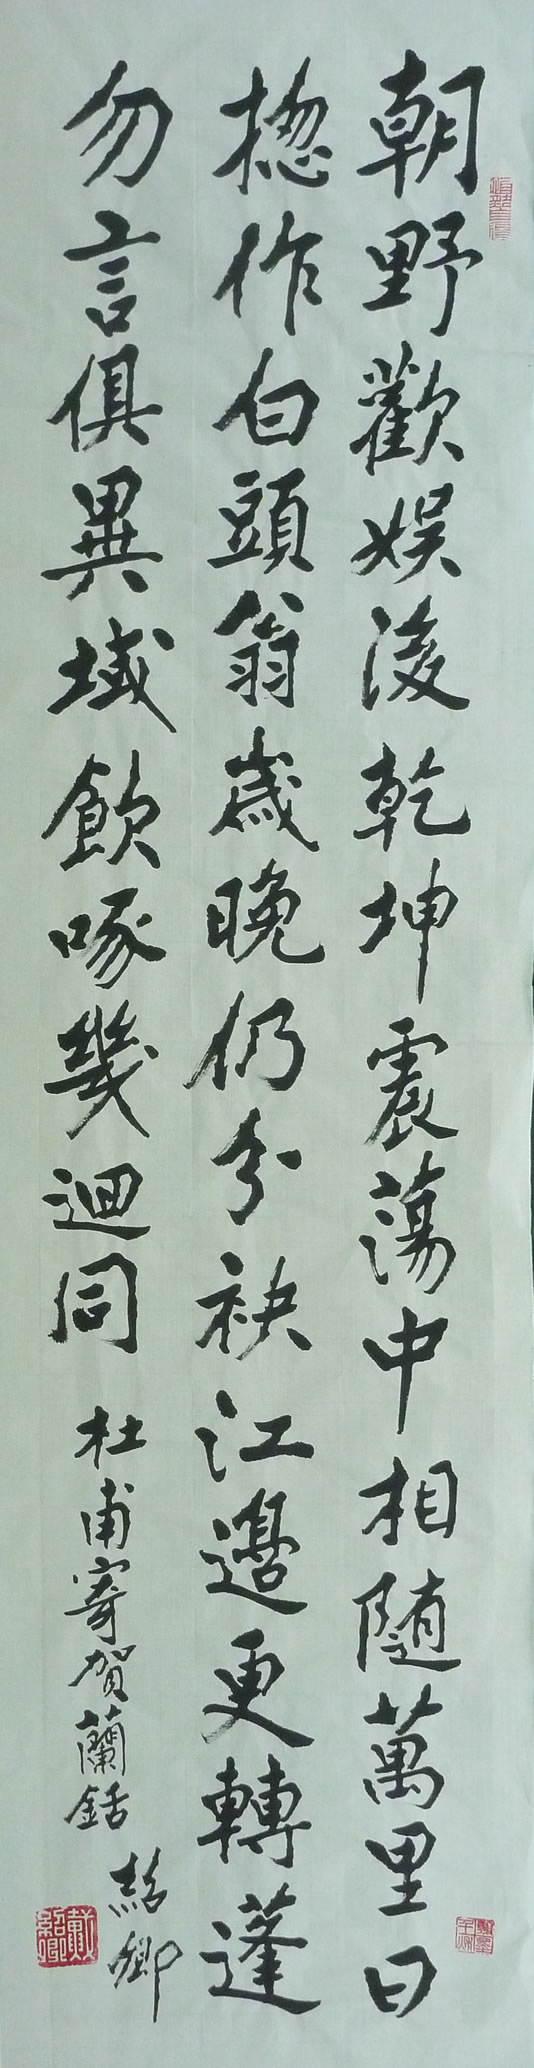 朝野歡娱後乾坤震蕩中相隨萬里日
揔作白頭翁歲晚仍分袂江邊更轉蓬
勿言俱異域飲啄幾迴同
杜甫寄賀蘭銛
紹卿
戴紹卿